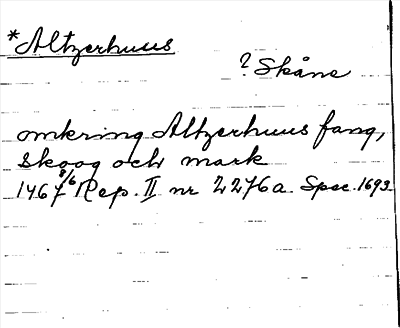 *Altzerhuus
? Skåne
omkring Altzerhuus fang,
skoog och mark
1467 8/6 Rep. II nr 2276a. Spec. 1693